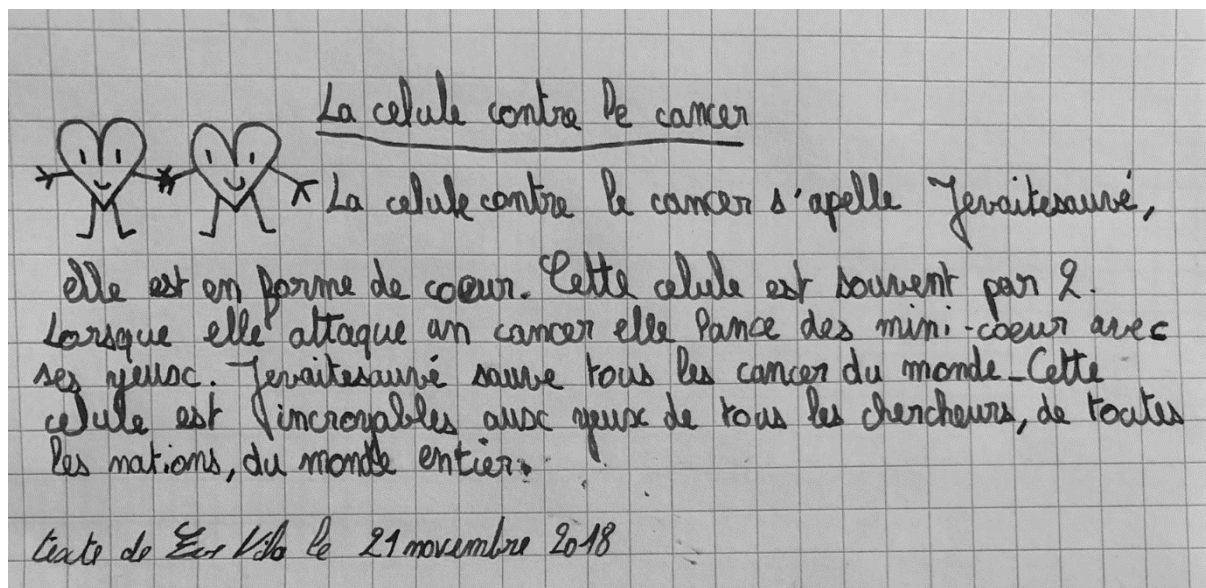 La celule contre le cancer
La celule contre le cancer s'apelle Jevaitesauvé,
elle est en forme de coeur. Cette celule est souvent par 2.
Lorsque elle attaque un cancer elle lance des mini-coeur avec
ses yeux. Jevaitesauvé sauve tous les cancer du monde. Cette
celule est incroyables aux yeux de tous les chercheurs, de toutes
les nations, du monde entier.
texte de le 21 novembre 2018